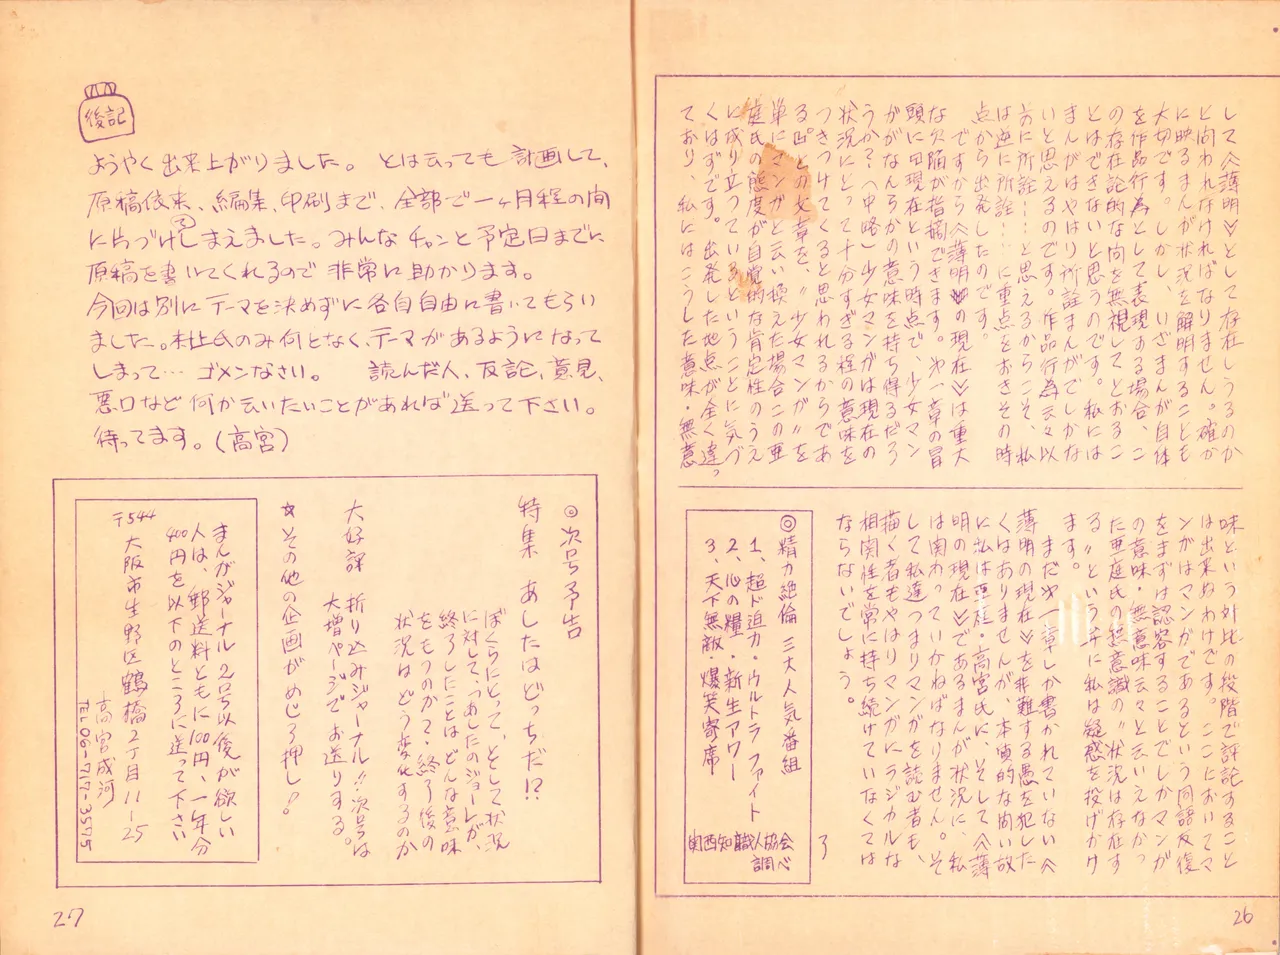 して〈薄明〉として存在しうるのか
と問われなければなりません。確か
に映るまんが状況を解明することも
大切です。しかし、いざまんが自体
を作品行為として表現する場合、こ
の存在論的な問を無視してとおるこ
とはできないと思うのです。私には
まんがはやはり所詮まんがでしかな
いと思えるのです。作品行為云々以
前に所詮……と思えるからこそ、私
は逆に所詮……に重点をおきその時
点から出発したのです。
ですから〈薄明の現在〉は重大
な欠陥が指摘できます。第一章の冒
頭に「現在という時点で、少女マン
ががなんらかの意味を持ち得るだろ
うか？（中略）少女マンガは現在の
状況にとって十分すぎる程の意味を
つきつけてくると思われるからであ
る」との文章を、〝少女マンガ〟を
単にマンガと云い換えた場合この亜
庭氏の態度が自覚的な肯定性のうえ
に成り立っているということに気づ
くはずです。出発した地点が全く違。
ており、私にはこうした意味・無意
味という対比の段階で評託すること
は出来ぬわけです。ここにおいてマ
ンガはマンガであるという同語反復
をまずは認容することでしかマンガ
の意味・無意味云々と云いえなかっ
た亜庭氏の超意識の〝状況は存在す
る〟という弁に私は疑惑を投げかけ
ます。
まだ第一章しか書かれていない〈
薄明の現在〉を非難する愚を犯した
くはありませんが、本質的な問い故
に私は亜庭・高宮氏に、そして〈薄
明の現在〉であるまんが状況に、私
は関わっていかねばなりません。そ
して私達つまりマンガを読む者も、
描く者もやはりマンガにラジカルな
相関性を常に持ち続けていなくては
ならないでしょう。
了
◎精力絶倫 三大人気番組
1、超ド迫力・ウルトラファイト
2、心の糧・新生アワー
3、天下無敵・爆笑寄席
関西知識人協会
調べ
26
後記
ようやく出来上がりました。 とは云っても計画して、
原稿依来、編集、印刷まで、全部で一ヶ月程の間
に片づけてしまえました。みんなチャンと予定日までに
原稿を書いてくれるので非常に助かります。
今回は別にテーマを決めずに各自自由に書いてもらい
ました。村上氏のみ何となく、テーマがあるようになって
しまって… ゴメンなさい。 読んだ人、反論、意見、
悪口など何か云いたいことがあれば送って下さい。
待ってます。(高宮)
◎次号予告
特集 あしたはどっちだ!?
ぼくらにとって、そして状況
に対して、〝あしたのジョー〟が、
終了したことはどんな意味
をもつのか？・終了後の
状況はどう変化するのか
大好評 折り込みジャーナル!!次号は
大増ページでお送りする。
☆その他の企画がめじろ押し！
まんがジャーナル2号以後が欲しい
人は、郵送料ともに100円、一年分
400円を以下のところに送って下さい
〒544
大阪市生野区鶴橋2丁目11-25
高宮成河
TEL 06-717-3575
27